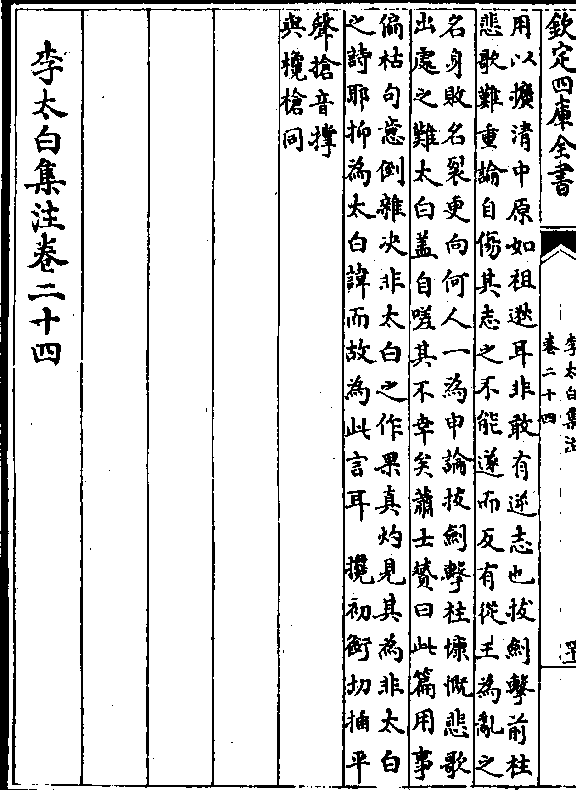 欽定四庫全書
李太白集注
卷二十四
用以擴清中原如祖逖耳非敢有逆志也拔劍擊前柱
悲歌難重論自傷其志之不能遂而反有從王為亂之
名身敗名裂更向何人一為申論拔劍擊柱慷慨悲歌
出處之難太白盖自嗟其不幸矣蕭士贇曰此篇用事
偏枯句意倒雜决非太白之作果真灼見其為非太白
之詩耶抑為太白諱而故為此言耳　攙初銜切插平
聲搶音撐
與欃槍同
李太白集注卷二十四